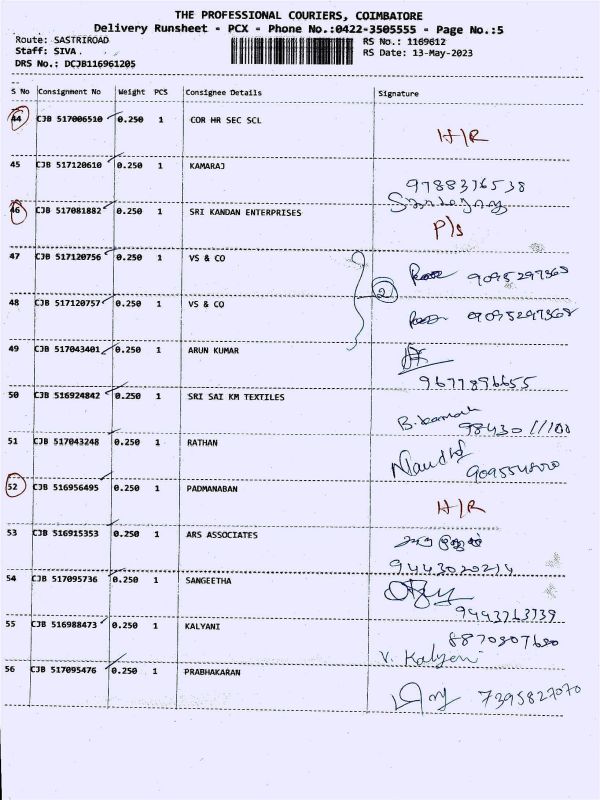 THE PROFESSIONAL COURIERS, COIMBATORE
Delivery Runsheet - PCX - Phone No.:0422-3505555 - Page No.:5
Route: SASTRIROAD RS No.: 1169612
Staff: SIVA. RS Date: 13-May-2023
DRS No.: DCJB116961205
S No Consignment No Weight PCS Consignee Details Signature
44 CJB 517006510 0.250 1 COR HR SEC SCL H/R
45 CJB 517120610 0.250 1 KAMARAJ 9788376538
46 CJB 517081882 0.250 1 SRI KANDAN ENTERPRISES P/s
47 CJB 517120756 0.250 1 VS & CO 9095297368
2
48 CJB 517120757 0.250 1 VS & CO 9095297368
49 CJB 517043401 0.250 1 ARUN KUMAR
9677896655
50 CJB 516924842 0.250 1 SRI SAI KM TEXTILES
B.
51 CJB 517043248 0.250 1 RATHAN
52 CJB 516956495 0.250 1 PADMANABAN H/R
53 CJB 516915353 0.250 1 ARS ASSOCIATES
9443020214
54 CJB 517095736 0.250 1 SANGEETHA
9443763739
55 CJB 516988473 0.250 1 KALYANI
V. Kalyani
56 CJB 517095476 0.250 1 PRABHAKARAN 7395827070